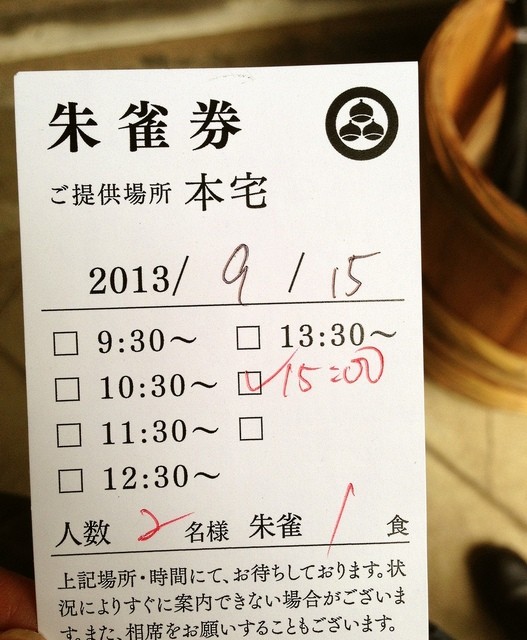 朱雀券
ご提供場所 本宅
2013/ 9 / 15
□ 9:30〜 □ 13:30〜
□ 10:30〜 □ ✓15:00
□ 11:30〜 □
□ 12:30〜
人数 2 名様 朱雀 1 食
上記場所・時間にて、お待ちしております。状
況によりすぐに案内できない場合がございま
す。また、相席をお願いすることもございます。